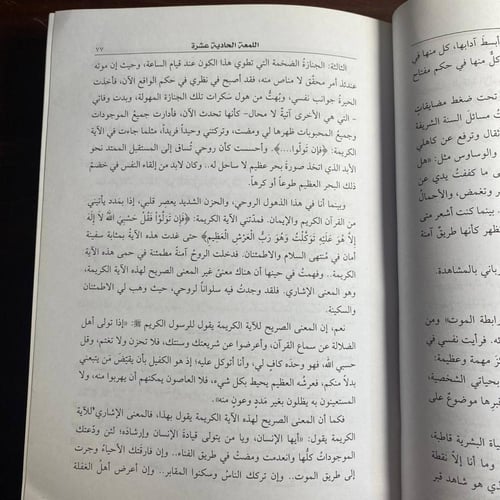 اللمعة الحادية عشرة
٧٧
الثالثة: الجنازة الضخمة التي تطوي هذا الكون عند قيام الساعة، وحيث إن موته
عندئذ أمر محقّق لا مناص منه، فقد أصبح في نظري في حكم الواقع الآن، فأخذت
الحيرة جوانب نفسي، وبُهتُّ من هول سكرات تلك الجنازة المهولة، وبدت وفاتي
- التي هي الأخرى آتيةٌ لا محال- كأنها تحدث الآن، فأدارت جميع الموجودات
وجميع المحبوبات ظهرها لي ومضت، وتركتني وحيداً فريداً، مثلما جاءت في الآية
الكريمة: ﴿فَإِن تَوَلَّوا...﴾. وأحسست كأن روحي تُساق إلى المستقبل الممتد نحو
الأبد الذي اتخذ صورةَ بحر عظيم لا ساحل له.. وكان لابد من إلقاء النفس في خضمّ
ذلك البحر العظيم طوعاً أو كرهاً.
وبينما أنا في هذا الذهول الروحي، والحزن الشديد يعصر قلبي، إذا بمَدَدٍ يأتيني
من القرآن الكريم والإيمان، فمدّتني الآية الكريمة: ﴿فَإِن تَوَلَّوْا فَقُلْ حَسْبِيَ اللَّهُ لَا إِلَٰهَ
إِلَّا هُوَ عَلَيْهِ تَوَكَّلْتُ وَهُوَ رَبُّ الْعَرْشِ الْعَظِيمِ﴾ حتى غدت هذه الآية بمثابة سفينة
أمان في مُنتهى السلام والاطمئنان، فدخلت الروحُ آمنةً مطمئنة في حمى هذه الآية
الكريمة.. وفهمتُ في حينها أن هناك معنىً غير المعنى الصريح لهذه الآية الكريمة،
وهو المعنى الإشاري. فلقد وجدتُ فيه سلواناً لروحي، حيث وهب لي الاطمئنان
والسكينة.
نعم، إن المعنى الصريح للآية الكريمة يقول للرسول الكريم ﷺ: «إذا تولى أهل
الضلالة عن سماع القرآن، وأعرضوا عن شريعتك وسنتك، فلا تحزن ولا تغتم، وقل
حسبي الله، فهو وحدَه كافٍ لي، وأنا أتوكل عليه؛ إذ هو الكفيل بأن يقيّض مَن يتبعني
بدلاً منكم، فعرشُه العظيم يحيط بكل شيء، فلا العاصون يمكنهم أن يهربوا منه، ولا
المستعينون به يظلون بغير مَددٍ وعونٍ منه».
فكما أن المعنى الصريح لهذه الآية الكريمة يقول بهذا، فالمعنى الإشاري للآية
الكريمة يقول: «أيها الإنسان، ويا من يتولى قيادةَ الإنسان وإرشادَه؛ لئن ودّعتك
الموجوداتُ كلُّها وانعدمت ومضت في طريق الفناء.. وإن فارقتك الأحياءُ وجرت
إلى طريق الموت.. وإن تركك الناسُ وسكنوا المقابر.. وإن أعرض أهلُ الغفلة